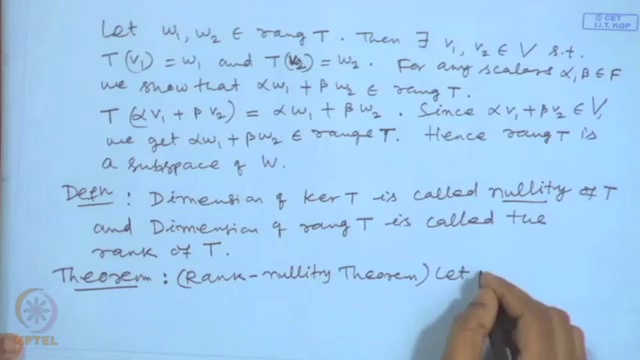 © CET
I.I.T. KGP
Let w₁, w₂ ∈ rang T. Then ∃ v₁, v₂ ∈ V s.t.
T(v₁) = w₁ and T(v₂) = w₂. For any scalars α, β ∈ F
we show that αw₁ + βw₂ ∈ rang T.
T(αv₁ + βv₂) = αw₁ + βw₂. Since αv₁ + βv₂ ∈ V,
we get αw₁ + βw₂ ∈ range T. Hence rang T is
a subspace of W.
Defn : Dimension of ker T is called nullity of T
and Dimension of rang T is called the
rank of T.
Theorem : (Rank-nullity Theorem) Let
NPTEL